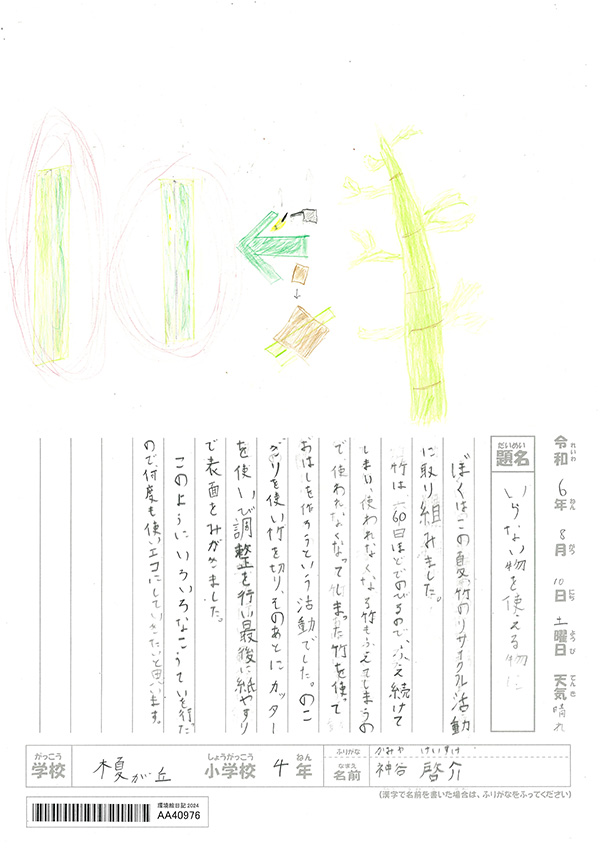 令和6年8月10日土曜日 天気晴れ
れいわ ねん がつ にち ようび てんき
だいめい
題名 いらない物を使える物に
ぼくはこの夏竹のリサイクル活動
に取り組みました。
竹は、60日ほどでのびるので、ふえ続けて
しまい、使われなくなる竹もふえてしまうの
で、使われなくなってしまった竹を使って
おはしを作ろうという活動でした。のこ
ぎりを使い竹を切り、そのあとにカッター
を使い、び調整を行い最後に紙やすり
で表面をみがきました。
このようにいろいろなこうていを行った
ので何度も使い、エコにしていきたいと思います。
がっこう
学校 榎が丘
しょうがっこう ねん
小学校 4年
ふりがな かみや けいすけ
なまえ
名前 神谷 啓介
(漢字で名前を書いた場合は、ふりがなをふってください)
環境絵日記 2024
AA40976